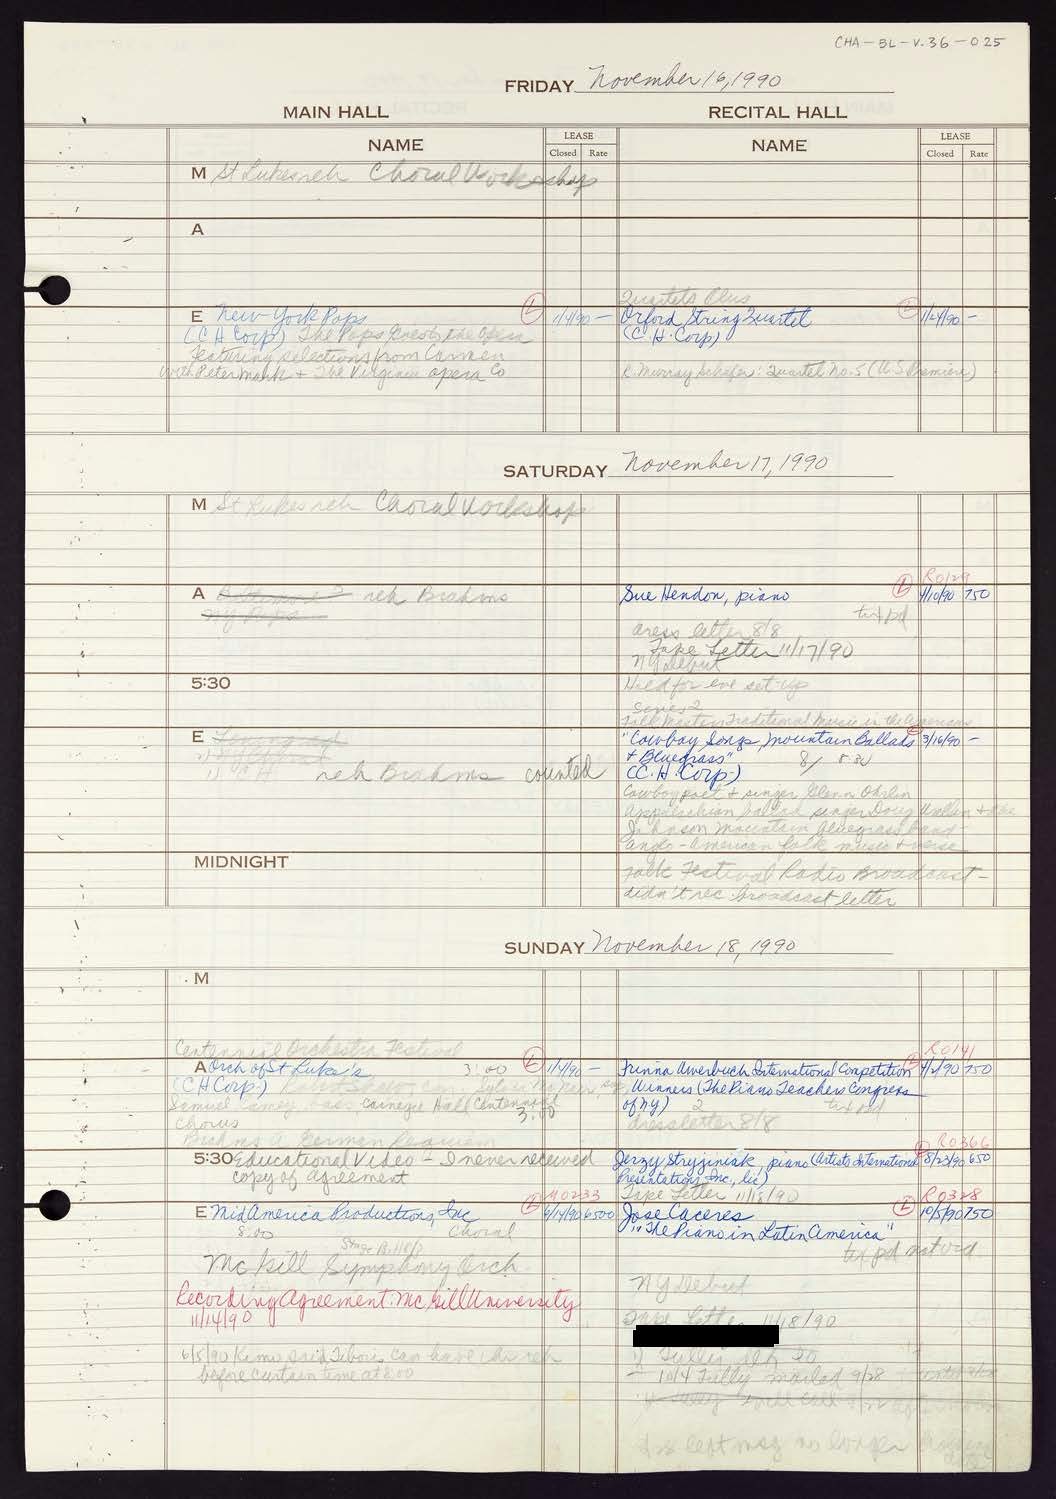 CHA-BL-V.36-025
FRIDAY November 16, 1990
MAIN HALL RECITAL HALL
NAME LEASE Closed Rate NAME LEASE Closed Rate
M St Lukes reh Choral Workshop
A
Quartets Plus
E New York Pops L 1/4/90 - Orford String Quartet L 1/24/90 -
(C H Corp) The Pops Greets the Opera (C. H. Corp)
featuring selections from Carmen
with Peter Mark + The Virginia Opera Co R. Murray Schafer: Quartet No. 5 (U.S. Premiere)
SATURDAY November 17, 1990
M St Lukes reh Choral Workshop
R0129
A reh Brahms Sue Hendon, piano L 4/10/90 750
NY Pops txt pd
dress letter 8/8
Tape Letter 11/17/90
NY Debut
5:30 Held for eve set-up
Series 2
Folk Masters Traditional Music in the Americas
E "Cowboy Songs, Mountain Ballads 3/16/90 -
+ Bluegrass" 8/ 8:30
" C H reh Brahms counted (C. H. Corp.)
Cowboy poet + singer Glenn Ohrlin
Appalachian ballad singer Doug Wallin + the
Johnson Mountain Bluegrass band -
anglo-American folk music + verse
MIDNIGHT Folk Festival Radio Broadcast -
didn't rec broadcast letter
SUNDAY November 18, 1990
M
Centennial Orchestra Festival R0141
A Orch of St Luke's 3:00 L 1/4/90 - Frinna Awerbuch International Competition L 4/2/90 750
(C H Corp.) Robert Shaw Sylvia McNair, sop Winners (The Piano Teachers Congress
Samuel bass Carnegie Hall Centennial 3:00 of NY) 2 txt pd
Chorus dress letter 8/8
Brahms A German Requiem
R0366
5:30 Educational Video - I never received Jerzy Stryjniak, piano (Artists International 8/23/90 650
copy of agreement Presentations, Inc., lic)
M0233 Tape Letter 11/18/90 R0328
E MidAmerica Productions, Inc L 6/14/90 6500 Jose Caceres L 10/5/90 750
8:00 Choral "The Piano in Latin America"
txt pd not rvd
McGill Symphony Orch
NY Debut
Recording Agreement: McGill University
11/14/90 Tape Letter 11/18/90
6/5/90 Kimu said Tibor can have reh
before curtain time at 8:00 10/4 Tully mailed 9/28
left msg no longer